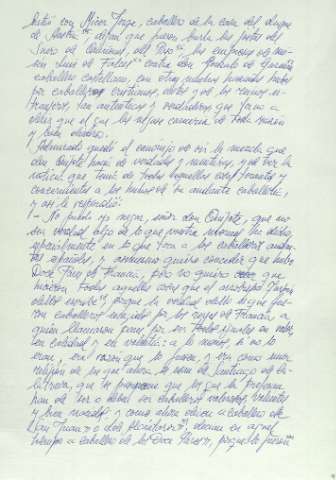 batió con Micer Jorge, caballero de la casa del duque
de Austria; digan que fueron burla las justas de
Suero de Quiñones, del Paso; las empresas de mo-
sén Luis de Falces contra don Gonzalo de Guzmán,
caballero castellano, con otras muchas hazañas hechas
por caballeros cristianos, déstos y de los reinos ex-
tranjeros, tan auténticas y verdaderas, que torno a
decir que el que las negase carecería de toda razón
y buen discurso.
Admirado quedó el canónigo de oír la mezcla que
don Quijote hacía de verdades y mentiras, y de ver la
noticia que tenía de todas aquellas cosas tocantes y
concernientes a los hechos de su andante caballería,
y así le respondió:
- No puedo yo negar, señor don Quijote, que no
sea verdad algo de lo que vuestra merced ha dicho,
especialmente en lo que toca a los caballeros andan-
tes españoles, y asimismo quiero conceder que hubo
Doce Pares de Francia, pero no quiero creer que
hicieron todas aquellas cosas que el arzobispo Turpín
dellos escribe; porque la verdad dello es que fue-
ron caballeros escogidos por los reyes de Francia, a
quien llamaron pares por ser todos iguales en valor,
en calidad y en valentía: a lo menos, si no lo
eran, era razón que lo fuesen, y era como una
religión de las que ahora se usan de Santiago o de Ca-
latrava, que se presupone que los que la profesan
han de ser o deben ser caballeros valerosos, valientes
y bien nacidos; y como ahora dicen «caballero de
San Juan» o «de Alcántara», decían en aquel
tiempo «caballero de los Doce Pares», porque fueron